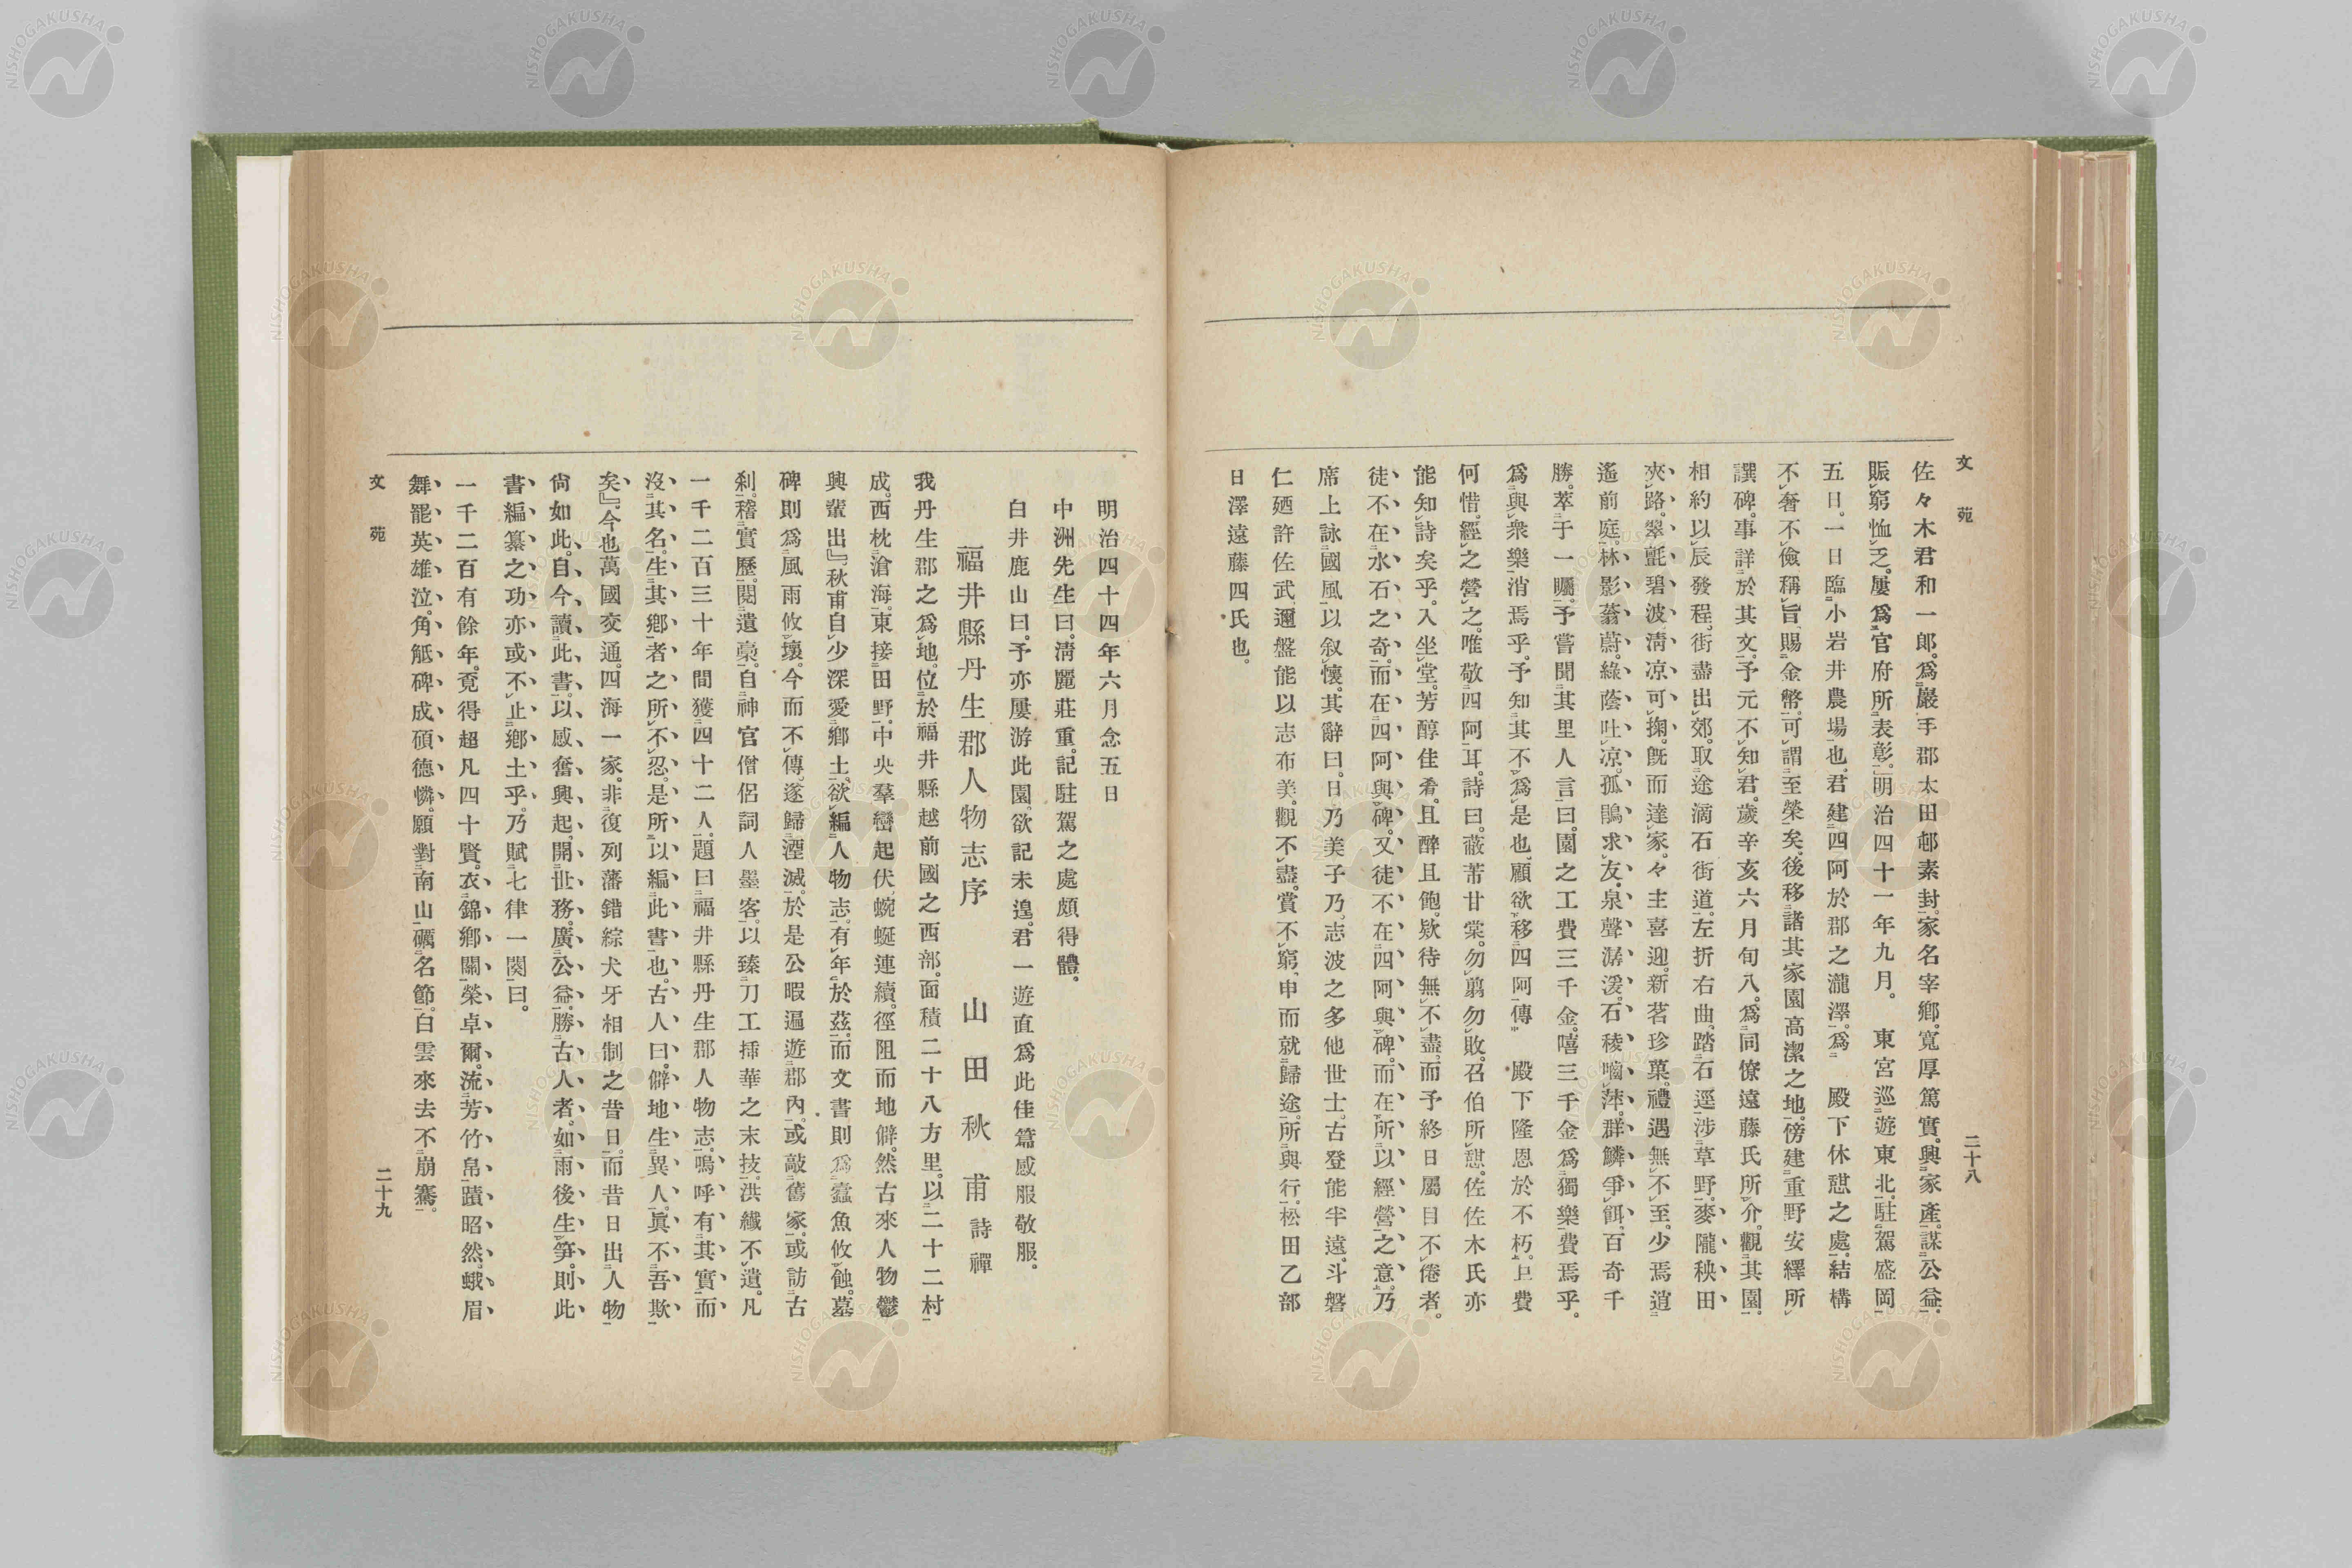 文苑
二十八
佐々木君和一郎。爲巖手郡太田邨素封。家名宰鄕。寬厚篤實。興家產。謀公益。
賑窮恤乏。屢爲官府所表彰。明治四十一年九月。　東宮巡遊東北。駐駕盛岡
五日。一日臨小岩井農場也。君建四阿於郡之瀧澤。爲　殿下休憩之處。結構
不奢不儉稱旨。賜金幣。可謂至榮矣。後移諸其家園高潔之地。傍建重野安繹所
譔碑。事詳於其文。予元不知君。歲辛亥六月旬八。爲同僚遠藤氏所介。觀其園。
相約以辰發程。街盡出郊。取途滴石街道。左折右曲。踏石逕。涉草野。麥隴秧田
夾路。翠氈碧波。淸凉可掬。旣而達家。々主喜迎。新茗珍菓。禮遇無不至。少焉逍
遙前庭。林影蓊蔚。綠蔭吐凉。孤鵑求友。泉聲潺湲。石稜嚙萍。群鱗爭餌。百奇千
勝。萃于一矚。予嘗聞其里人言曰。園之工費三千金。嘻三千金爲獨樂費焉乎。
爲與衆樂消焉乎。予知其不爲是也。顧欲移四阿傳　殿下隆恩於不朽。且費
何惜。經之營之。唯敬四阿耳。詩曰。蔽芾甘棠。勿翦勿敗。召伯所憩。佐佐木氏亦
能知詩矣乎。入坐堂。芳醇佳肴。且醉且飽。欵待無不盡。而予終日屬目不倦者。
徒不在水石之奇。而在四阿與碑。又徒不在四阿與碑。而在所以經營之意。乃
席上詠國風以叙懷。其辭曰。日乃美子乃。志波之多他世士。古登能半遠。斗磐
仁廼許佐武邇盤能以志布美。觀不盡。賞不窮。申而就歸途。所與行。松田乙部
日澤遠藤四氏也。
明治四十四年六月念五日
中洲先生曰。淸麗莊重。記駐駕之處頗得體。
白井鹿山曰。予亦屢游此園。欲記未遑。君一遊直爲此佳篇感服敬服。
福井縣丹生郡人物志序　山田秋甫 詩禪
我丹生郡之爲地。位於福井縣越前國之西部。面積二十八方里。以二十二村
成。西枕滄海。東接田野。中央羣巒起伏。蜿蜒連續。徑阻而地僻。然古來人物鬱
興輩出』。秋甫自少深愛鄕土。欲編人物志。有年於茲。而文書則爲蠹魚攸蝕。墓
碑則爲風雨攸壞。今而不傳。遂歸湮滅。於是公暇遍遊郡內。或敲舊家。或訪古
刹。稽實歷。閱遺稾。自神官僧侶詞人墨客。以臻刀工揷華之末技。洪纖不遺。凡
一千二百三十年間獲四十二人。題曰福井縣丹生郡人物志。嗚呼有其實而
沒其名。生其鄕者之所不忍。是所以編此書也。古人曰。僻地生異人。眞不吾欺
矣』。今也萬國交通。四海一家。非復列藩錯綜犬牙相制之昔日。而昔日出人物
尙如此。自今讀此書。以感奮興起。開世務。廣公益。勝古人者。如雨後生笋。則此
書編纂之功亦或不止鄕土乎。乃賦七律一闋曰。
一千二百有餘年。竟得超凡四十賢。衣錦鄕關榮卓爾。流芳竹帛蹟昭然。蛾眉
舞罷英雄泣。角觝碑成碩德憐。願對南山礪名節。白雲來去不崩騫。
文苑
二十九